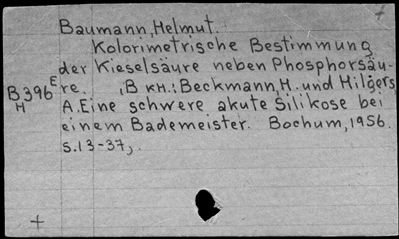 Baumann, Helmut.
Kolorimetrische Bestimmung
der Kieselsäure neben Phosphorsäu-
re. , В кн.: Beckmann, H. und Hilgers
A. Eine schwere akute Silikose bei
einem Bademeister. Bochum, 1956.
S. 13-37,.
B396 E
H